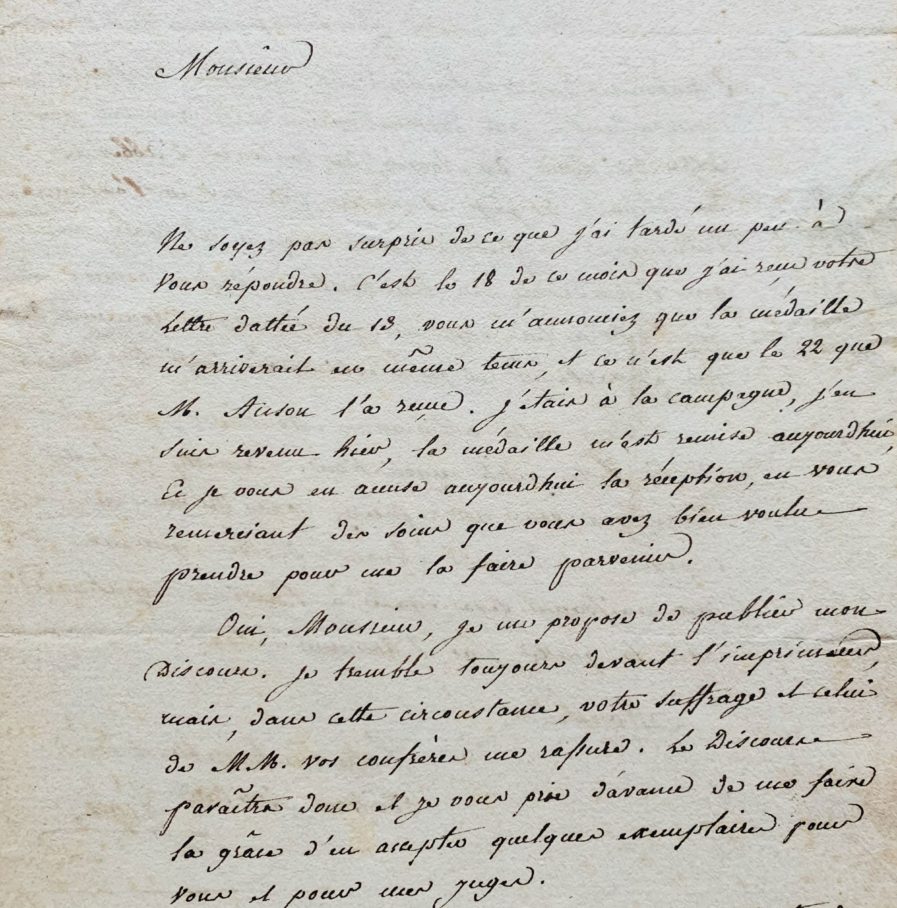 Monsieur
Ne soyez pas surpris de ce que j'ai tardé un peu à
Vous répondre. C'est le 18 de ce mois que j'ai reçu votre
Lettre dattée du 13, vous m'annonciez que la médaille
m'arriverait en même tems, et ce n'est que le 22 que
M. Anson l'a reçue. j'étais à la campagne, j'en
suis revenu hier, la médaille m'est remise aujourdhui,
Et je vous en accuse aujourdhui la réception, en vous
remerciant des soins que vous avez bien voulu
prendre pour me la faire parvenir.
Oui, Monsieur, je me propose de publier mon
Discours. je tremble toujours devant l'imprimeur,
mais, dans cette circonstance, votre suffrage et celui
de MM. vos confrères me rassure. Le Discours
paraîtra donc et je vous prie d'avance de me faire
la grâce d'en accepter quelques exemplaires pour
vous et pour mes juges.